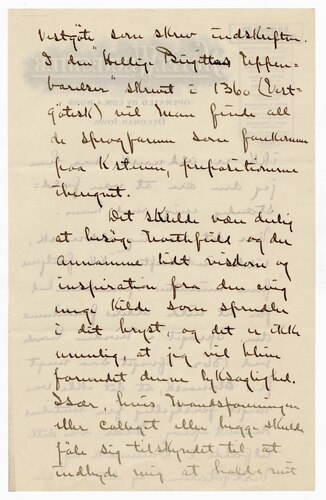 vestgöte som skrev indskriften.
I den "Hellige Birgittas Uppen-
barelser" skrevet i 1360 (Vest-
götisk) vil man finde alle
de sprogformer som forekommer
paa K-stenen, prepositionerne
iberegnet.
Det skulde være deilig
at besöge Northfield og der
annamme lidt visdom og
inspiration fra den evig
unge kilde som sprudler
i dit bryst, og det er ikke
umulig, at jeg vil blive
forundt denne lyksalighed.
Især, hvis Mandsforeningen
eller colleget eller begge skulde
föle sig tilskyndet til at
indbyde mig at holde mit